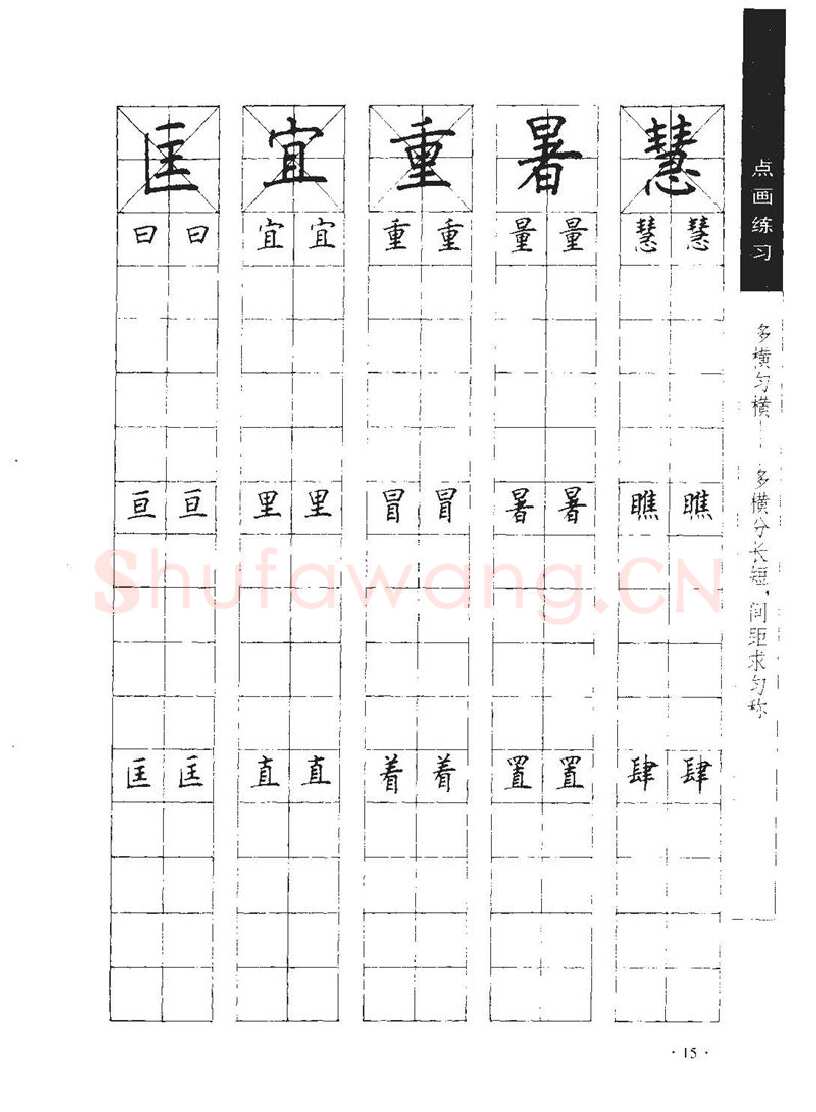 点画练习
多横匀横—多横分长短,间距求匀称
匡 宜 重 暑 慧
曰 曰 宜 宜 重 重 量 量 慧 慧
亘 亘 里 里 冒 冒 暑 暑 瞧 瞧
匡 匡 直 直 着 着 置 置 肆 肆
Shufawang.CN
· 15 ·